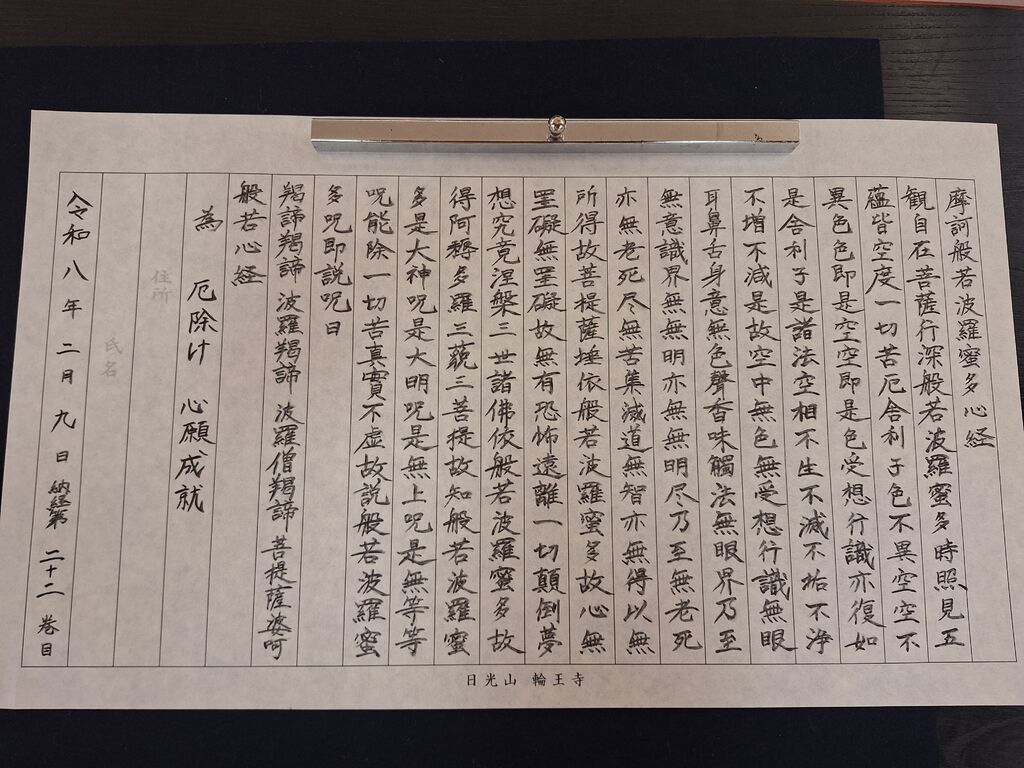 摩訶般若波羅蜜多心経
観自在菩薩行深般若波羅蜜多時照見五
蘊皆空度一切苦厄舎利子色不異空空不
異色色即是空空即是色受想行識亦復如
是舎利子是諸法空相不生不滅不垢不浄
不増不減是故空中無色無受想行識無眼
耳鼻舌身意無色聲香味觸法無眼界乃至
無意識界無無明亦無無明尽乃至無老死
亦無老死尽無苦集滅道無智亦無得以無
所得故菩提薩埵依般若波羅蜜多故心無
罣礙無罣礙故無有恐怖遠離一切顛倒夢
想究竟涅槃三世諸佛依般若波羅蜜多故
得阿耨多羅三藐三菩提故知般若波羅蜜
多是大神呪是大明呪是無上呪是無等等
呪能除一切苦真實不虚故説般若波羅蜜
多呪即説呪曰
羯諦羯諦 波羅羯諦 波羅僧羯諦 菩提薩婆呵
般若心経
為 厄除け 心願成就
住所
氏名
令和八年二月九日 納経第 二十二 巻目
日光山 輪王寺